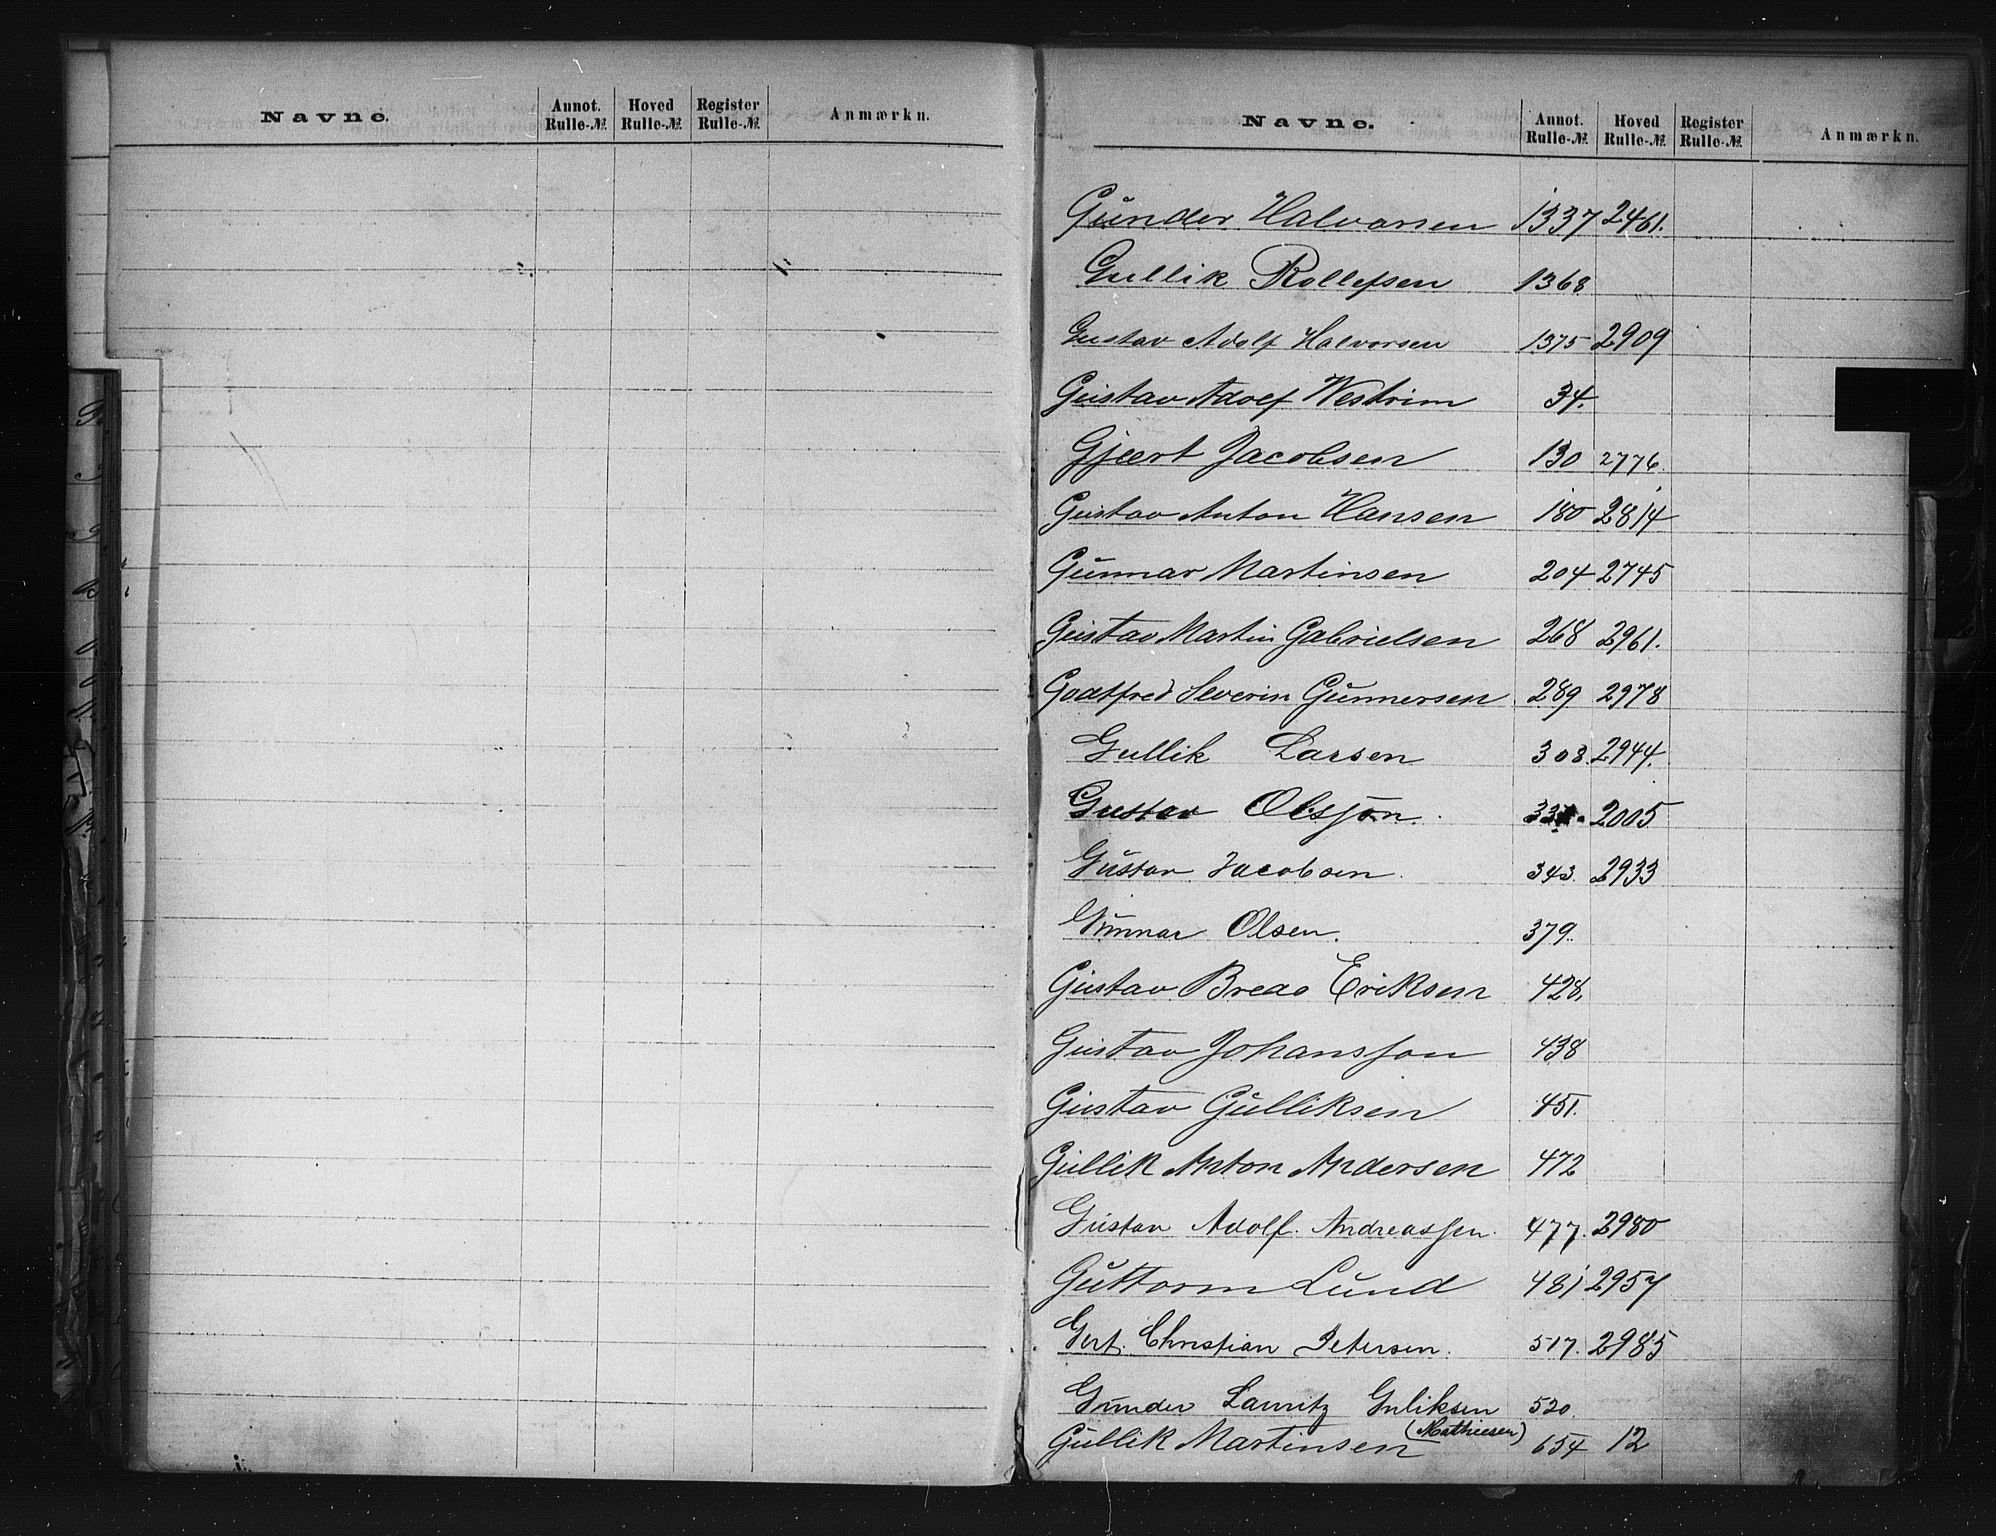 Navne. Annot. Rulle-№ Hoved Rulle-№ Register Rulle-№ Anmærkn.
Navne. Annot. Rulle-№ Hoved Rulle-№ Register Rulle-№ Anmærkn.
Gunder Halvorsen 1337 2461.
Gullik Rollefsen 1368
Gustav Adolf Halvorsen 1375 2909
Gustav Adolf Westrim 34.
Gjært Jacobsen 130 2776.
Gustav Anton Hansen 180 2814
Gunnar Martinsen 204 2745
Gustav Martin Gabrielsen 268 2961.
Godtfred Severin Gunnersen 289 2978
Gullik Larsen 303. 2944.
Gustav Olsson. 2005
Gustav Jacobsen. 343. 2933
Gunnar Olsen. 379.
Gustav Eriksen 428.
Gustav Johansson 438
Gustav Gulliksen 451.
Gullik Anton Andersen 472
Gustav Adolf. Andreassen. 477. 2980
Guttorm Lund 481 2957
Gert. Christian Petersen. 517. 2985
Gunder Lauritz Guliksen 520.
(Mathiesen)
Gullik Martinsen 654 12